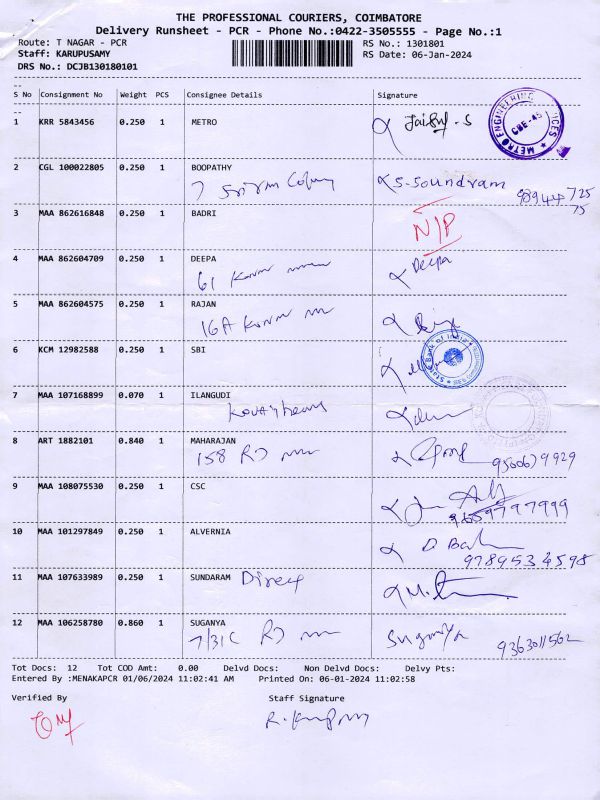 THE PROFESSIONAL COURIERS, COIMBATORE
Delivery Runsheet - PCR - Phone No.:0422-3505555 - Page No.:1
Route: T NAGAR - PCR RS No.: 1301801
Staff: KARUPUSAMY RS Date: 06-Jan-2024
DRS No.: DCJB130180101
S No Consignment No Weight PCS Consignee Details Signature
1 KRR 5843456 0.250 1 METRO
METRO ENGINEERING CBE-45
2 CGL 100022805 0.250 1 BOOPATHY
7 S-Soundram 98944 725
75
3 MAA 862616848 0.250 1 BADRI N/P
4 MAA 862604709 0.250 1 DEEPA Deepa
61
5 MAA 862604575 0.250 1 RAJAN
16A
6 KCM 12982588 0.250 1 SBI
State Bank of India
7 MAA 107168899 0.070 1 ILANGUDI
8 ART 1882101 0.840 1 MAHARAJAN
158 RJ
9 MAA 108075530 0.250 1 CSC
9659797999
10 MAA 101297849 0.250 1 ALVERNIA
9789534598
11 MAA 107633989 0.250 1 SUNDARAM Direct
12 MAA 106258780 0.860 1 SUGANYA
7/31C RJ Suganya 9363011562
Tot Docs: 12 Tot COD Amt: 0.00 Delvd Docs: Non Delvd Docs: Delvy Pts:
Entered By :MENAKAPCR 01/06/2024 11:02:41 AM Printed On: 06-01-2024 11:02:58
Verified By Staff Signature